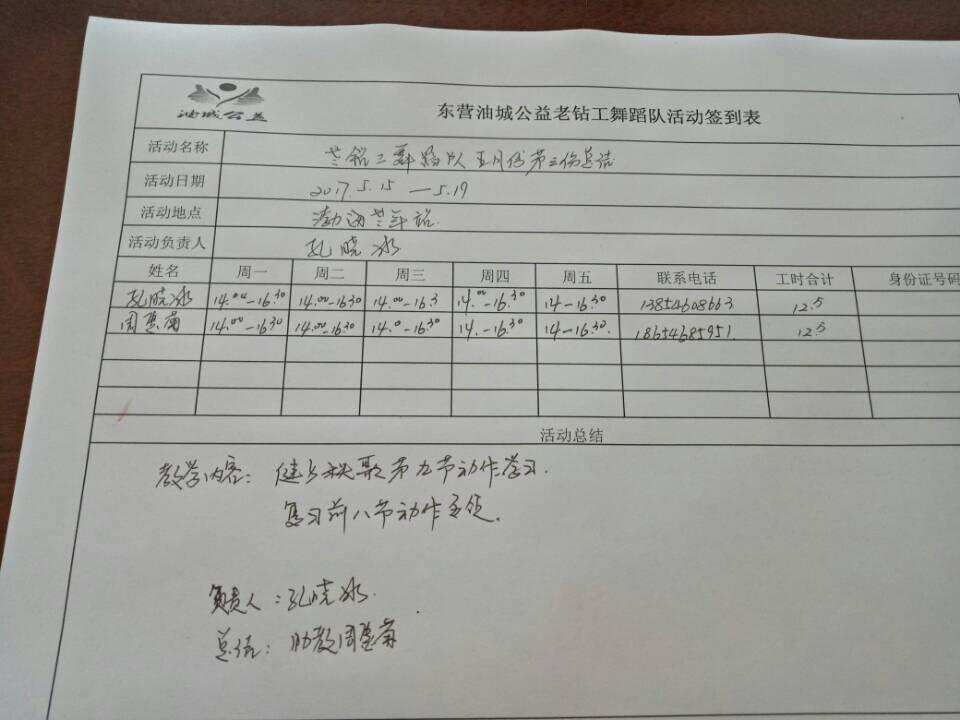 油城公益
东营油城公益老钻工舞蹈队活动签到表
活动名称 老钻工舞蹈队五月份第三份总结
活动日期 2017.5.15—5.19
活动地点 渤海老年站.
活动负责人 孔晓冰
姓名 周一 周二 周三 周四 周五 联系电话 工时合计 身份证号码
孔晓冰 14.00-16.30 14.00-16.30 14.00-16.3 14.00-16.30 14-16.30 13854608663 12.5
周慧菊 14.00-16.30 14.00-16.30 14.0-16.30 14.-16.30 14-16.30. 18654685951. 12.5
活动总结
教学内容: 健身秧歌第九节动作学习.
复习前八节动作要领.
负责人:孔晓冰.
总结: 助教周慧菊